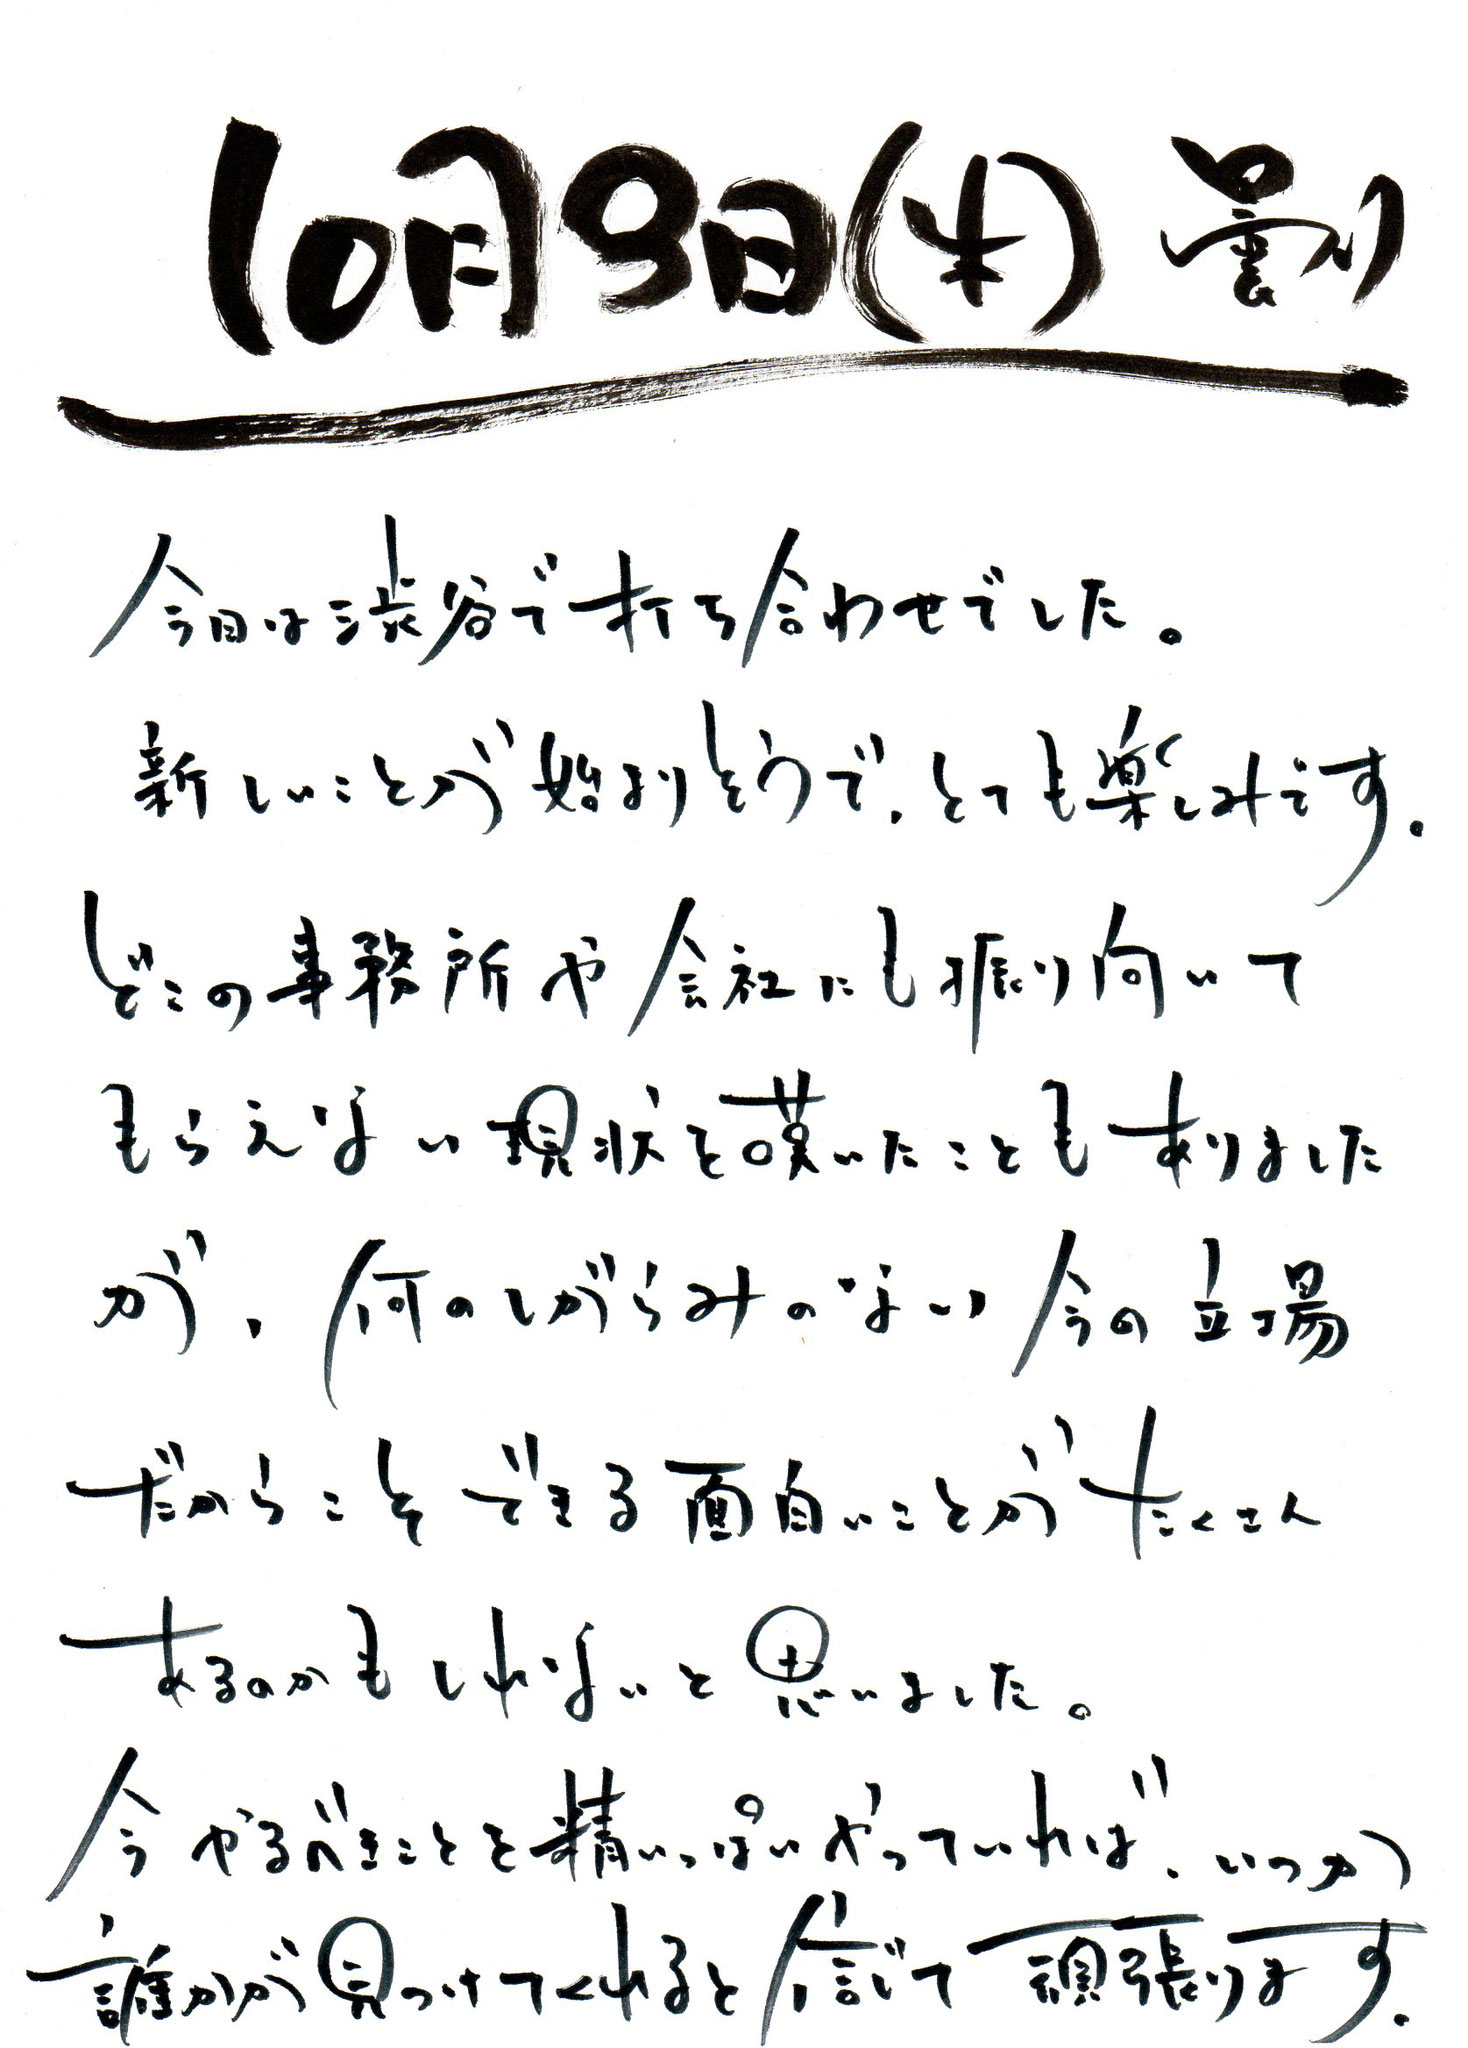 10月9日(水) 曇り
今日は渋谷で打ち合わせでした。
新しいことが始まりそうで、とても楽しみです。
どこの事務所や会社にも振り向いて
もらえない現状を嘆いたこともありました
が、何のしがらみのない今の立場
だからこそできる面白いことがたくさん
あるのかもしれないと思いました。
今やるべきことを精いっぱいやっていれば、いつか
誰かが見つけてくれると信じて頑張ります。